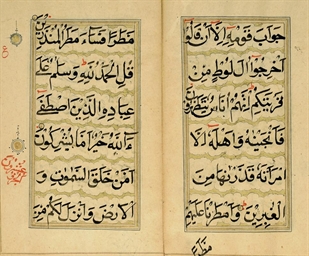 جواب قومه الا ان قالوا
اخرجوا ال لوط من
قريتكم انهم اناس يتطهرون
فانجينه واهله الا
امراته قدرنها من
الغبرين وامطرنا عليهم
مطرا
مطرا فساء مطر المنذرين
قل الحمد لله وسلم على
عباده الذين اصطفى
ءالله خير اما يشركون
امن خلق السموت و
الارض وانزل لكم من